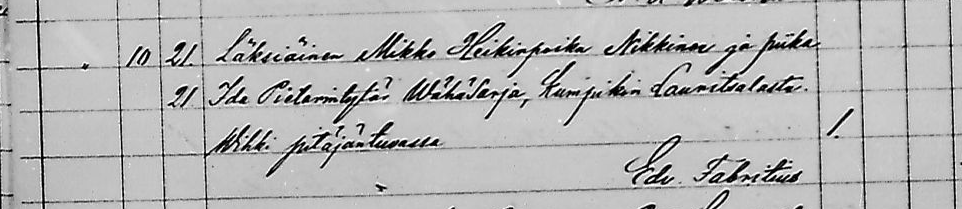 " 10 21 Läksiäinen Mikko Heikinpoika Nikkinen ja piika
21 Ida Pietarintytär Wähäsarja, kumpikin Lauritsalasta.
Wihki pitäjäntuvassa 1.
Edv. Fabritius